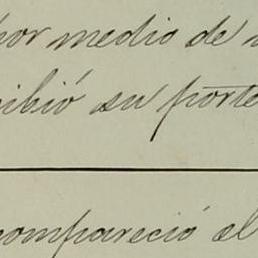 por medio de
cibió su porte
compareció el